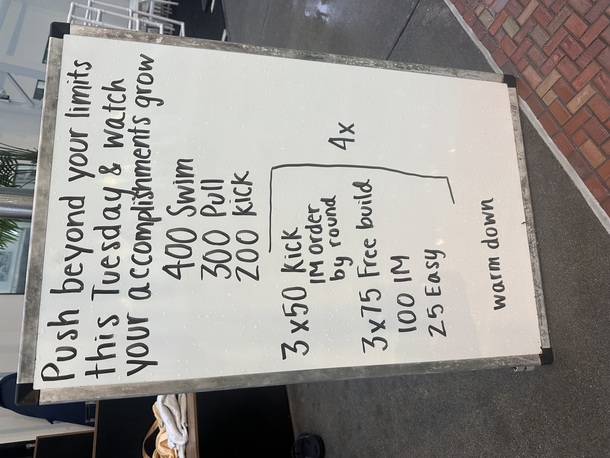 Push beyond your limits
this Tuesday & watch
your accomplishments grow
400 Swim
300 Pull
200 Kick
3 x 50 Kick
IM order
by round
3 x 75 Free build
100 IM
25 Easy
4x
warm down